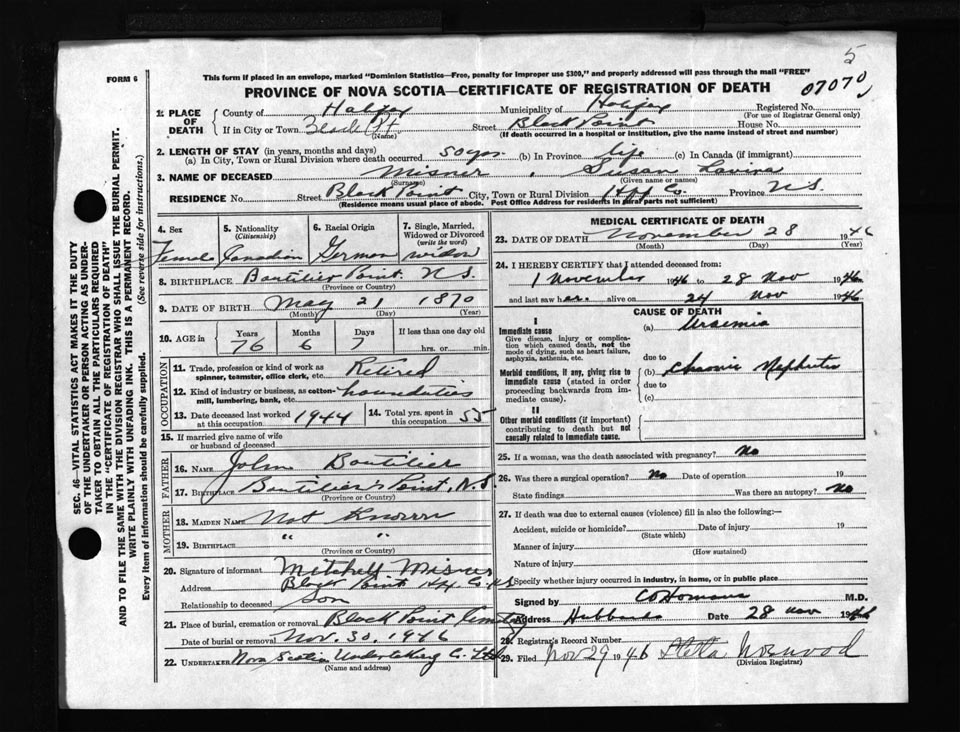 5
FORM 6
This form if placed in an envelope, marked "Dominion Statistics—Free, penalty for improper use $300," and properly addressed will pass through the mail "FREE"
PROVINCE OF NOVA SCOTIA—CERTIFICATE OF REGISTRATION OF DEATH
1. PLACE OF DEATH County of Halifax Municipality of Halifax Registered No.
(For use of Registrar General only)
If in City or Town Street Black Point House No.
(Name) (If death occurred in a hospital or institution, give the name instead of street and number)
2. LENGTH OF STAY (in years, months and days)
(a) In City, Town or Rural Division where death occurred 50 yrs (b) In Province life (c) In Canada (if immigrant)
3. NAME OF DECEASED Misner, Susan Lavina
(Surname) (Given name or names)
RESIDENCE No. Street Black Point City, Town or Rural Division Hfx Co. Province N.S.
(Residence means usual place of abode. Post Office Address for residents in rural parts not sufficient)
4. Sex 5. Nationality 6. Racial Origin 7. Single, Married, Widowed or Divorced
(Citizenship) (write the word)
Female Canadian German widow
8. BIRTHPLACE Boutilier Point. N.S.
(Province or Country)
9. DATE OF BIRTH May 21 1870
(Month) (Day) (Year)
10. AGE in Years Months Days If less than one day old
76 6 7 hrs. or min.
OCCUPATION
11. Trade, profession or kind of work as spinner, teamster, office clerk, etc. Retired
12. Kind of industry or business, as cotton-mill, lumbering, bank, etc. houseduties
13. Date deceased last worked at this occupation 1944 14. Total yrs. spent in this occupation 55
15. If married give name of wife or husband of deceased
FATHER
16. NAME John Boutilier
17. BIRTHPLACE Boutilier's Point, N.S.
(Province or Country)
MOTHER
18. MAIDEN NAME Not Known
19. BIRTHPLACE " "
(Province or Country)
20. Signature of informant Mitchell Misner
Address Black Point Hfx Co. N.S
Relationship to deceased Son
21. Place of burial, cremation or removal Black Point Cemetery
Date of burial or removal Nov. 30, 1946
22. UNDERTAKER Nova Scotia Undertaking Co. Ltd
(Name and address)
MEDICAL CERTIFICATE OF DEATH
23. DATE OF DEATH November 28 1946
(Month) (Day) (Year)
24. I HEREBY CERTIFY that I attended deceased from:
1 November 1946 to 28 Nov 1946
and last saw her alive on 24 Nov 1946
CAUSE OF DEATH
I
Immediate cause (a) Uraemia
Give disease, injury or complication which caused death, not the mode of dying, such as heart failure, asphyxia, asthenia, etc.
due to
Morbid conditions, if any, giving rise to immediate cause (stated in order proceeding backwards from immediate cause).
(b) Chronic Nephritis
due to
(c)
II
Other morbid conditions (if important) contributing to death but not causally related to immediate cause.
25. If a woman, was the death associated with pregnancy? No
26. Was there a surgical operation? No Date of operation 19
State findings Was there an autopsy? No
27. If death was due to external causes (violence) fill in also the following:—
Accident, suicide or homicide? Date of injury 19
(State which)
Manner of injury
(How sustained)
Nature of injury
Specify whether injury occurred in industry, in home, or in public place
Signed by M.D.
Address Hubbards Date 28 Nov 1946
28. Registrar's Record Number
29. Filed Nov 29 1946 Norwood
(Division Registrar)
SEC. 46—VITAL STATISTICS ACT MAKES IT THE DUTY
OF THE UNDERTAKER OR PERSON ACTING AS UNDER-
TAKER TO OBTAIN ALL THE PARTICULARS REQUIRED
IN THE "CERTIFICATE OF REGISTRATION OF DEATH"
AND TO FILE THE SAME WITH THE DIVISION REGISTRAR WHO SHALL ISSUE THE BURIAL PERMIT.
WRITE PLAINLY WITH UNFADING INK. THIS IS A PERMANENT RECORD.
Every item of information should be carefully supplied. (See reverse side for instructions.)